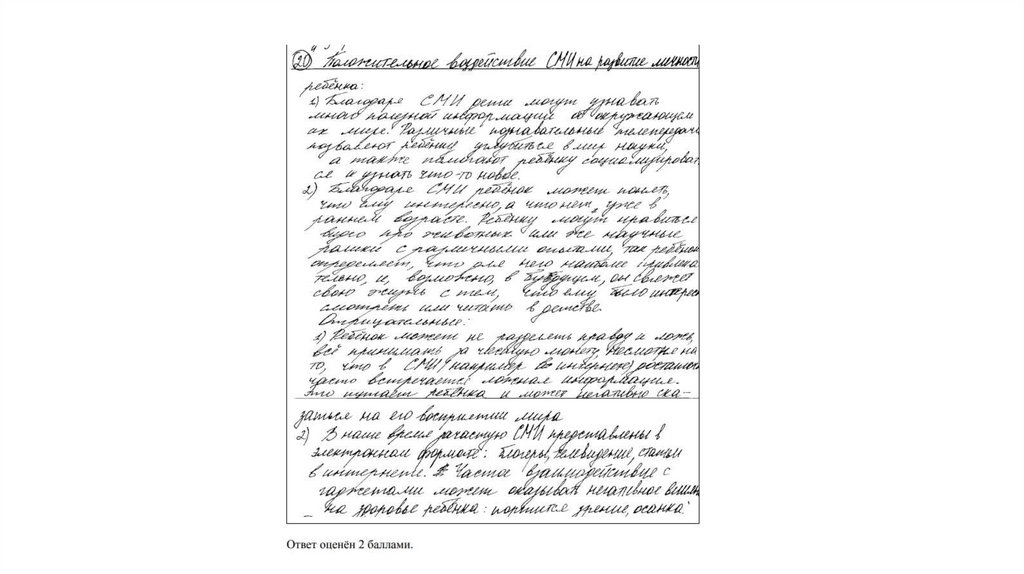 20 Положительное воздействие СМИ на развитие личности
ребёнка:
1) Благодаря СМИ дети могут узнавать
много полезной информации об окружающем
их мире. Различные познавательные телепередачи
позволяют ребёнку углубиться в мир науки,
а также помогают ребёнку социализироват
ся и узнать что-то новое.
2) Благодаря СМИ ребёнок может понять,
что ему интересно, а что нет, уже в
раннем возрасте. Ребёнку могут нравиться
видео про животных или же научные
ролики с различными опытами, так ребёнок
определяет, что для него наиболее привлека
тельно, и, возможно, в будущем, он свяжет
свою жизнь с тем, что ему было интересн
смотреть или читать в детстве.
Отрицательные:
1) Ребёнок может не разделять правду и ложь,
всё принимать за чистую монету, несмотря на
то, что в СМИ (например в интернете) достаточн
часто встречается ложная информация.
Это путает ребёнка и может негативно ска-
заться на его восприятии мира
2) В наше время зачастую СМИ представлены в
электронном формате: блогеры, телевидение, статьи
в интернете. Частое взаимодействие с
гаджетами может оказывать негативное влиян
на здоровье ребёнка: портится зрение, осанка.
Ответ оценён 2 баллами.